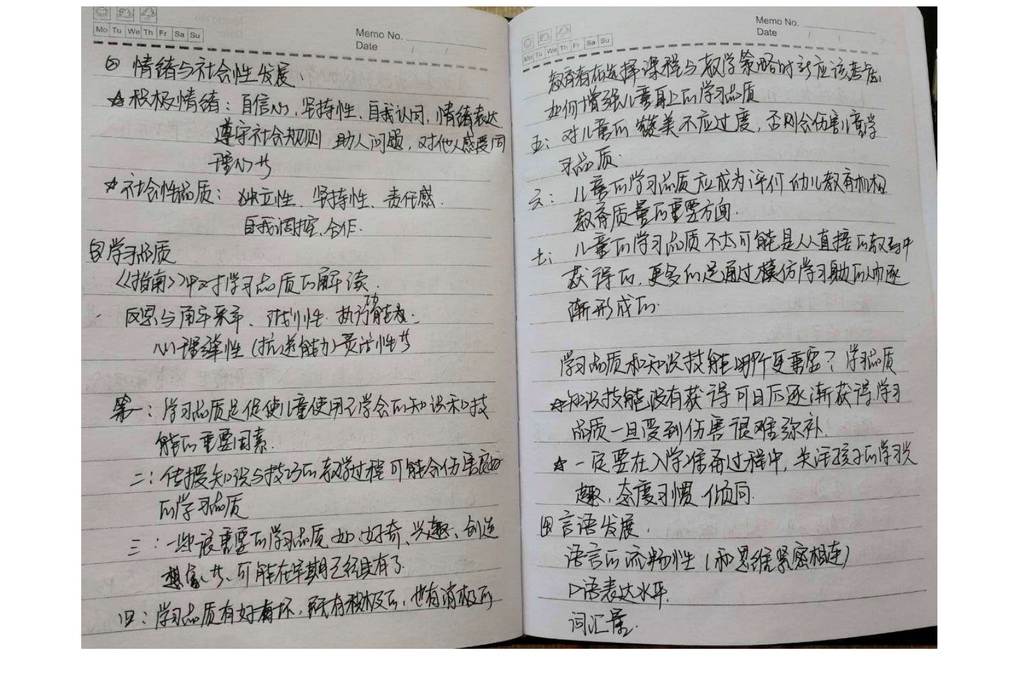 Mo Tu We Th Fr Sa Su
Memo No.
Date / /
情绪与社会性发展:
☆积极情绪:自信心,坚持性,自我认同,情绪表达
遵守社会规则 助人问题,对他人感受同
理心等
☆社会性品质:独立性、坚持性、责任感.
自我调控、合作.
学习品质
《指南》中对学习品质的解读.
计划性 执行能力.
心理弹性(抗逆能力)灵活性等
第一:学习品质是促使儿童使用已学会的知识和技
能的重要因素.
二:传授知识与技巧的教学过程可能会伤害
的学习品质
三:一些很重要的学习品质如:好奇、兴趣、创造
想象,等,可能在早期已经具有了.
四:学习品质有好有坏,既有积极的,也有消极的
Mo Tu We Th Fr Sa Su
Memo No.
Date / /
教育者在选择课程与教学策略时 应该考虑
如何增强儿童身上的学习品质
五:对儿童的赞美不应过度,否则会伤害儿童学
习品质.
六:儿童的学习品质应成为评价幼儿教育机构
教育质量的重要方面.
七:儿童的学习品质不太可能是从直接的教育中
获得的,更多的是通过模仿学习 的人而逐
渐形成的.
学习品质和知识技能哪个更重要?学习品质
☆知识技能没有获得可日后逐渐获得学习
品质一旦受到伤害很难弥补.
☆一定要在入学准备过程中,关注孩子的学习兴
趣,态度习惯 倾向.
四言语发展.
语言的流畅性(和思维紧密相连)
口语表达水平.
词汇量.